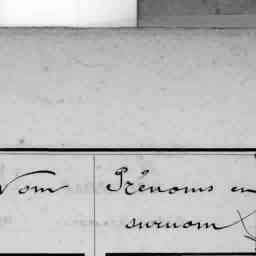 Nom
Prénoms en
surnom